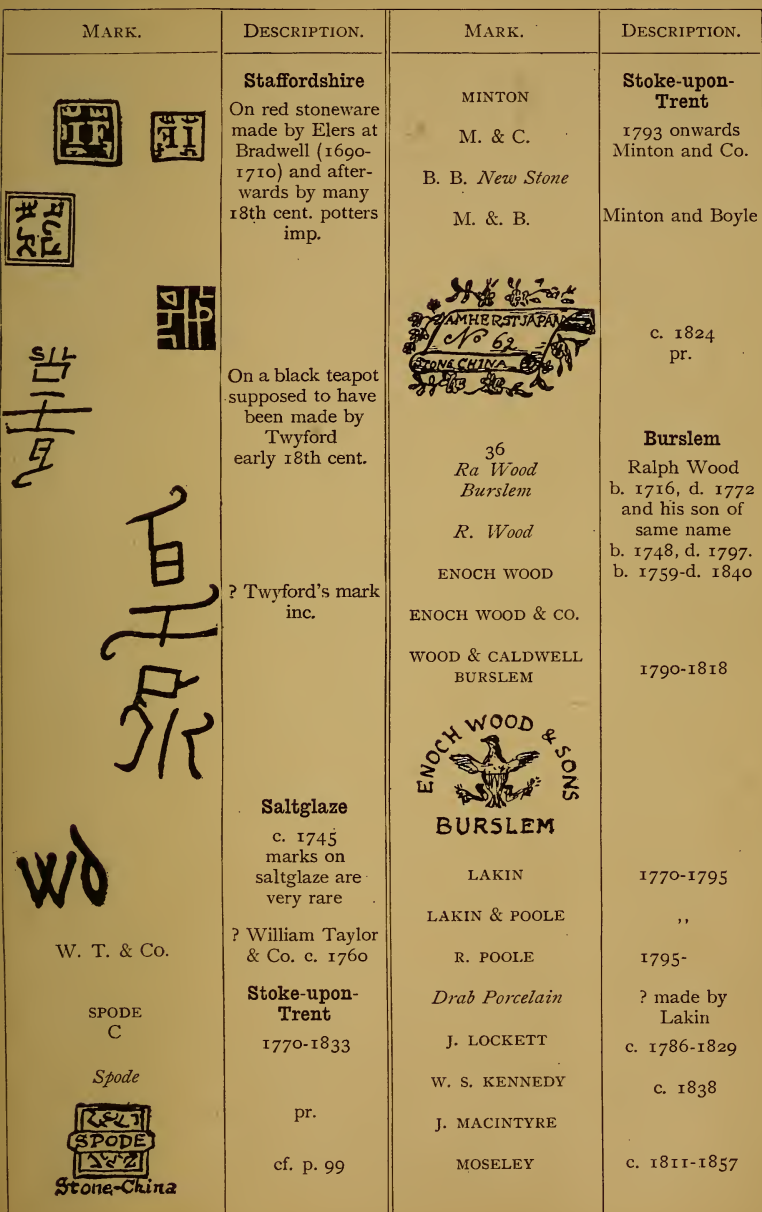 MARK.
DESCRIPTION.
MARK.
DESCRIPTION.
Staffordshire
On red stoneware
made by Elers at
Bradwell (1690-
1710) and after-
wards by many
18th cent. potters
imp.
On a black teapot
supposed to have
been made by
Twyford
early 18th cent.
? Twyford's mark
inc.
Saltglaze
c. 1745
marks on
saltglaze are
very rare
W. T. & Co.
? William Taylor
& Co. c. 1760
Stoke-upon-
Trent
SPODE
C
1770-1833
Spode
pr.
SPODE
Stone-China
cf. p. 99
MINTON
M. & C.
B. B. New Stone
M. &. B.
Stoke-upon-
Trent
1793 onwards
Minton and Co.
Minton and Boyle
AMHERST JAPAN
No 62
STONE CHINA
c. 1824
pr.
36
Ra Wood
Burslem
R. Wood
ENOCH WOOD
ENOCH WOOD & CO.
Burslem
Ralph Wood
b. 1716, d. 1772
and his son of
same name
b. 1748, d. 1797.
b. 1759-d. 1840
WOOD & CALDWELL
BURSLEM
1790-1818
ENOCH WOOD & SONS
BURSLEM
LAKIN
1770-1795
LAKIN & POOLE
,,
R. POOLE
1795-
Drab Porcelain
? made by
Lakin
J. LOCKETT
c. 1786-1829
W. S. KENNEDY
c. 1838
J. MACINTYRE
MOSELEY
c. 1811-1857